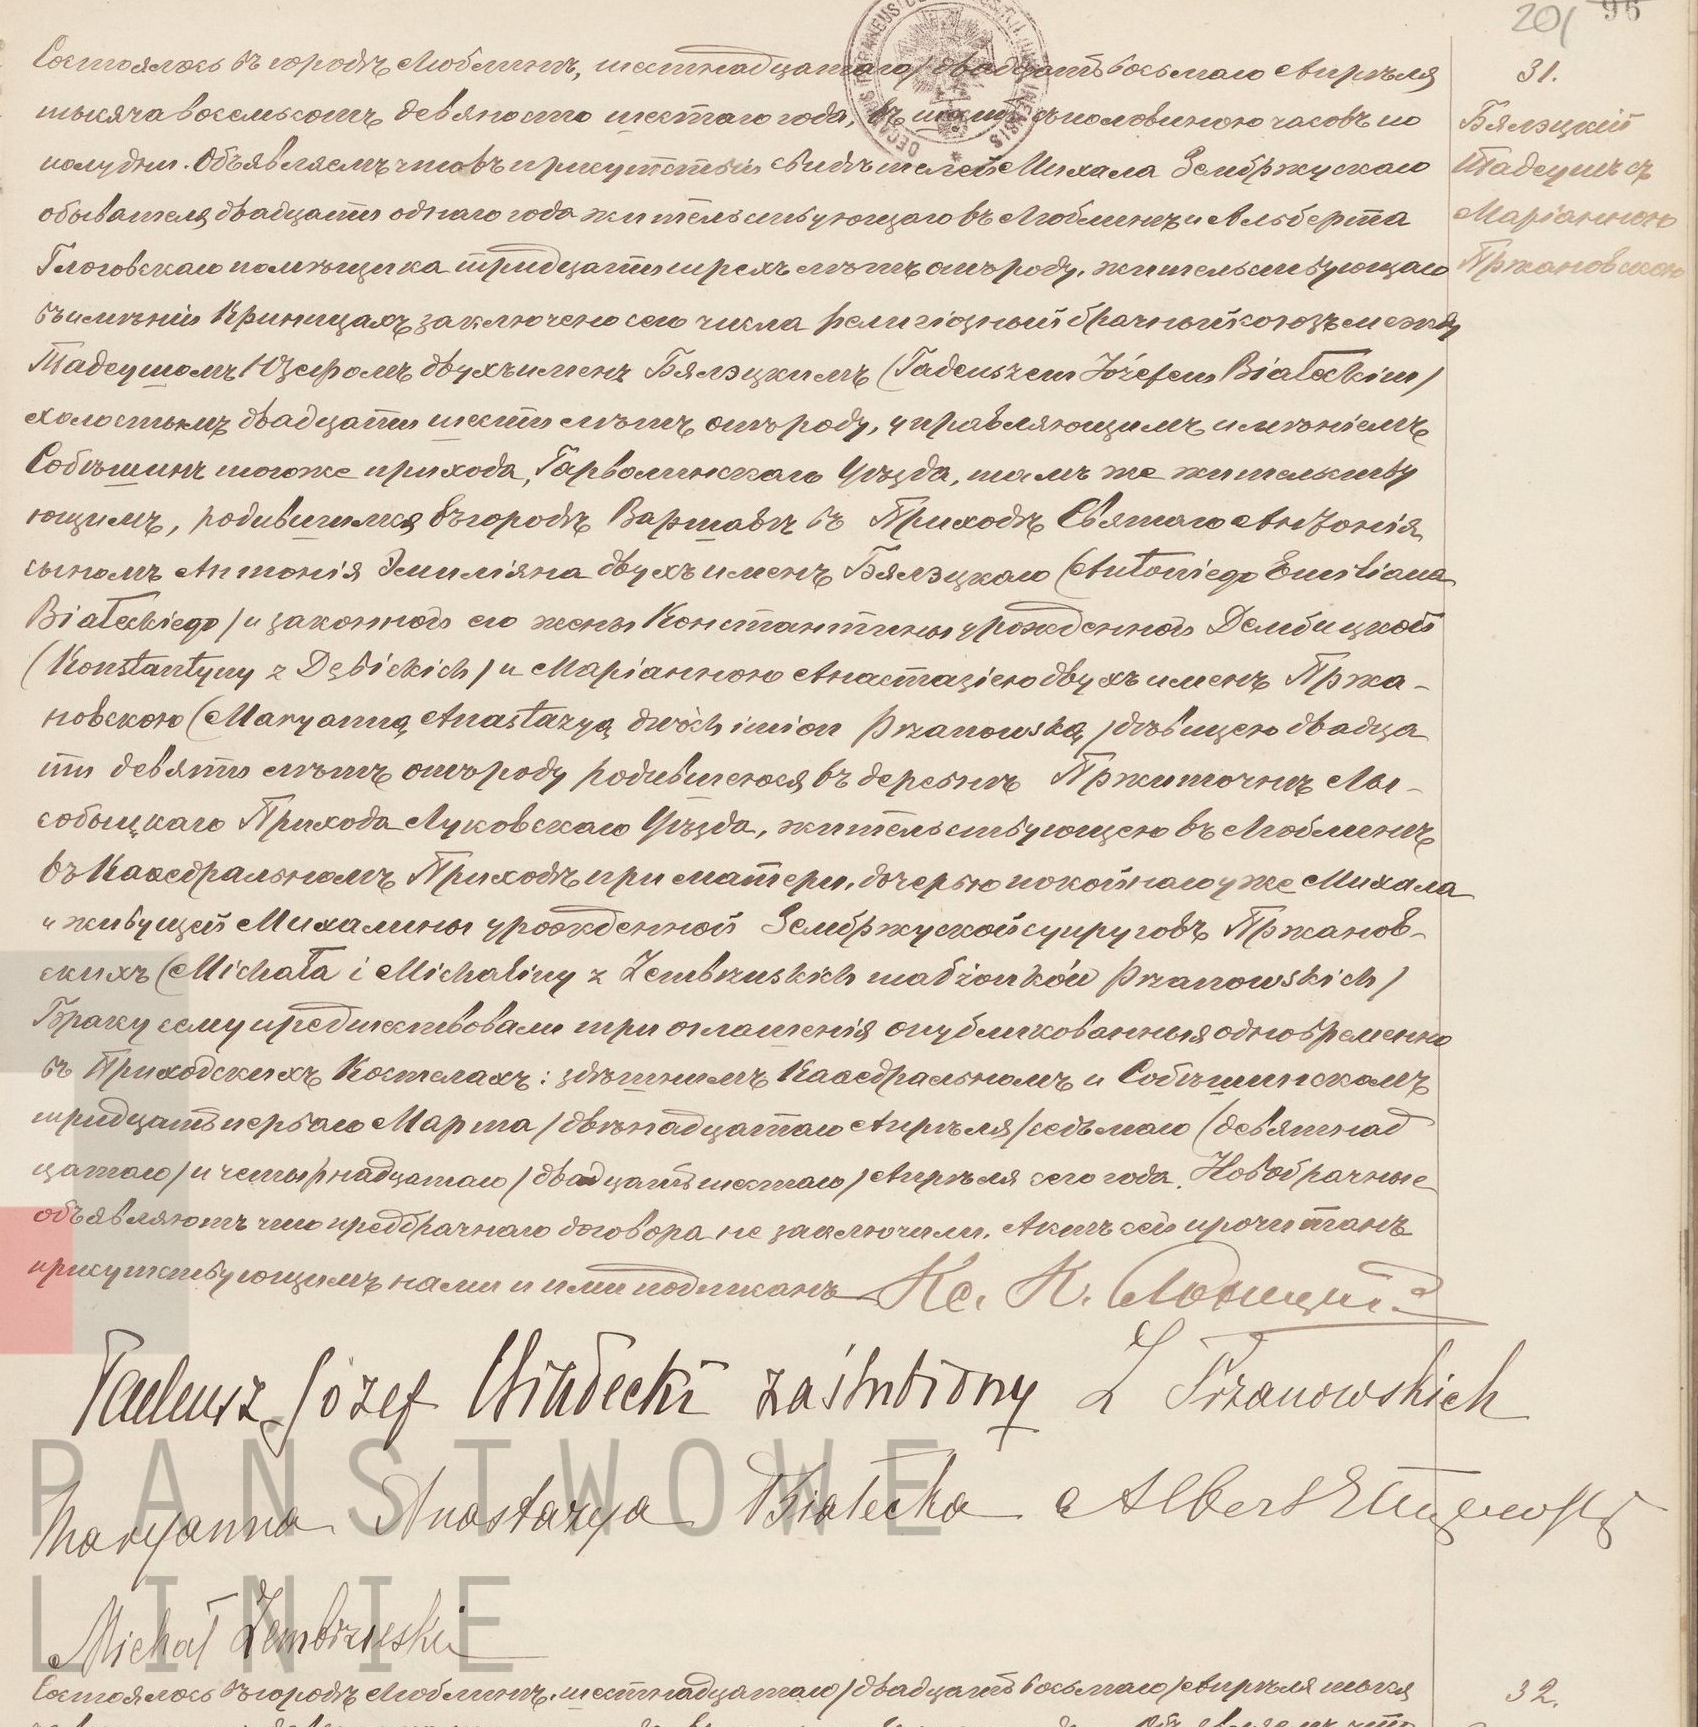 201 96
Состоялось въ городѣ Люблинѣ, шестнадцатаго /двадцать восьмаго Апрѣля
31.
тысяча восемьсотъ девяносто шестаго года, въ съ половиною часовъ по
Бялэцкій
полудни. Объявляемъ что въ присутствіи свидѣтелей Михала Зембржускаго
Тадеушъ съ
обывателя, двадцати однаго года жительствующаго въ Люблинѣ и Альберта
Маріанною
Глоговскаго помѣщика тридцати трехъ лѣтъ отъ роду, жительствующаго
Пржановскою
въ имѣніи Криницахъ заключено сего числа религіозный брачный союзъ между
Тадеушомъ Юзефомъ двухъ именъ Бялэцкимъ (Tadeuszem Józefem Białeckim)
холостымъ двадцати шести лѣтъ отъ роду, управляющимъ имѣніемъ
Собѣшинъ тогоже прихода, Гарволинскаго Уѣзда, тамъ же жительству
ющимъ, родившимся въ городѣ Варшавѣ въ Приходѣ Святаго Антонія,
сыномъ Антонія Эмиліяна двухъ именъ Бялэцкаго (Antoniego Emiliana
Białeckiego) и законной его жены Константины урожденной Дембицкой
(Konstantyny z Dębickich) и Маріанною Анастазіею двухъ именъ Пржа-
новскою (Maryanną Anastazyą dwóch imion Przanowską) дѣвицею двадца
ти девяти лѣтъ отъ роду родившеюся въ деревнѣ Пржиточнѣ Лы-
собыцкаго Прихода Луковскаго Уѣзда, жительствующею въ Люблинѣ
въ Каѳедральномъ Приходѣ при матери, дочерью покойнаго уже Михала
и живущей Михалины урожденной Зембржуской супруговъ Пржанов-
скихъ (Michała i Michaliny z Zembrzuskich małżonków Przanowskich)
Браку сему предшествовали три оглашенія опубликованныя одновременно
въ Приходскихъ Костелахъ: здѣшнимъ Каѳедральномъ и Собѣшинскомъ
тридцать перваго Марта /двѣнадцатаго Апрѣля/ седьмаго (девятнад
цатаго) и четырнадцатаго /двадцать шестаго/ Апрѣля сего года. Новобрачные
объявляютъ что предбрачнаго договора не заключили. Актъ сей прочитанъ
присутствующимъ нами и ими подписанъ Кс. К.
Tadeusz Józef Białecki zaślubiony z Przanowskich
Maryanna Anastazya Białecka Albert Głogowski
Michał Zembrzuski
PAŃSTWOWE
LINIE
Состоялось въ городѣ Люблинѣ, шестнадцатаго /двадцать восьмаго/ Апрѣля тыся
32.